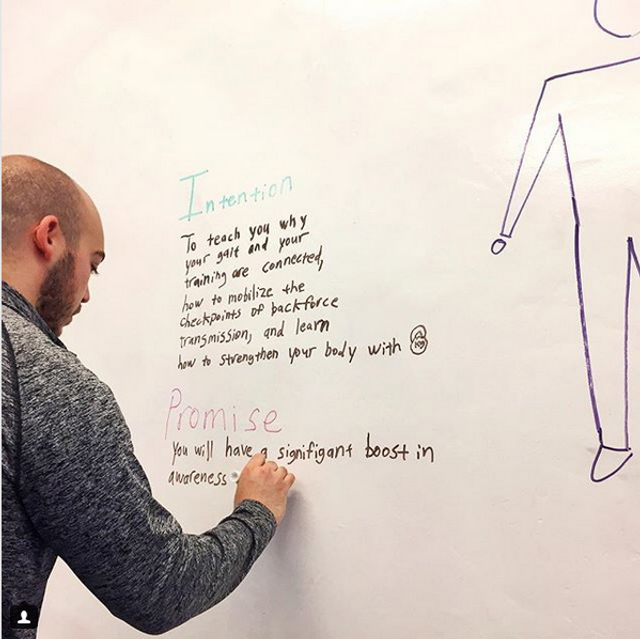 Intention
To teach you why
your gait and your
training are connected,
how to mobilize the
checkpoints of backforce
transmission, and learn
how to strengthen your body with
Promise
You will have a signifigant boost in
awareness